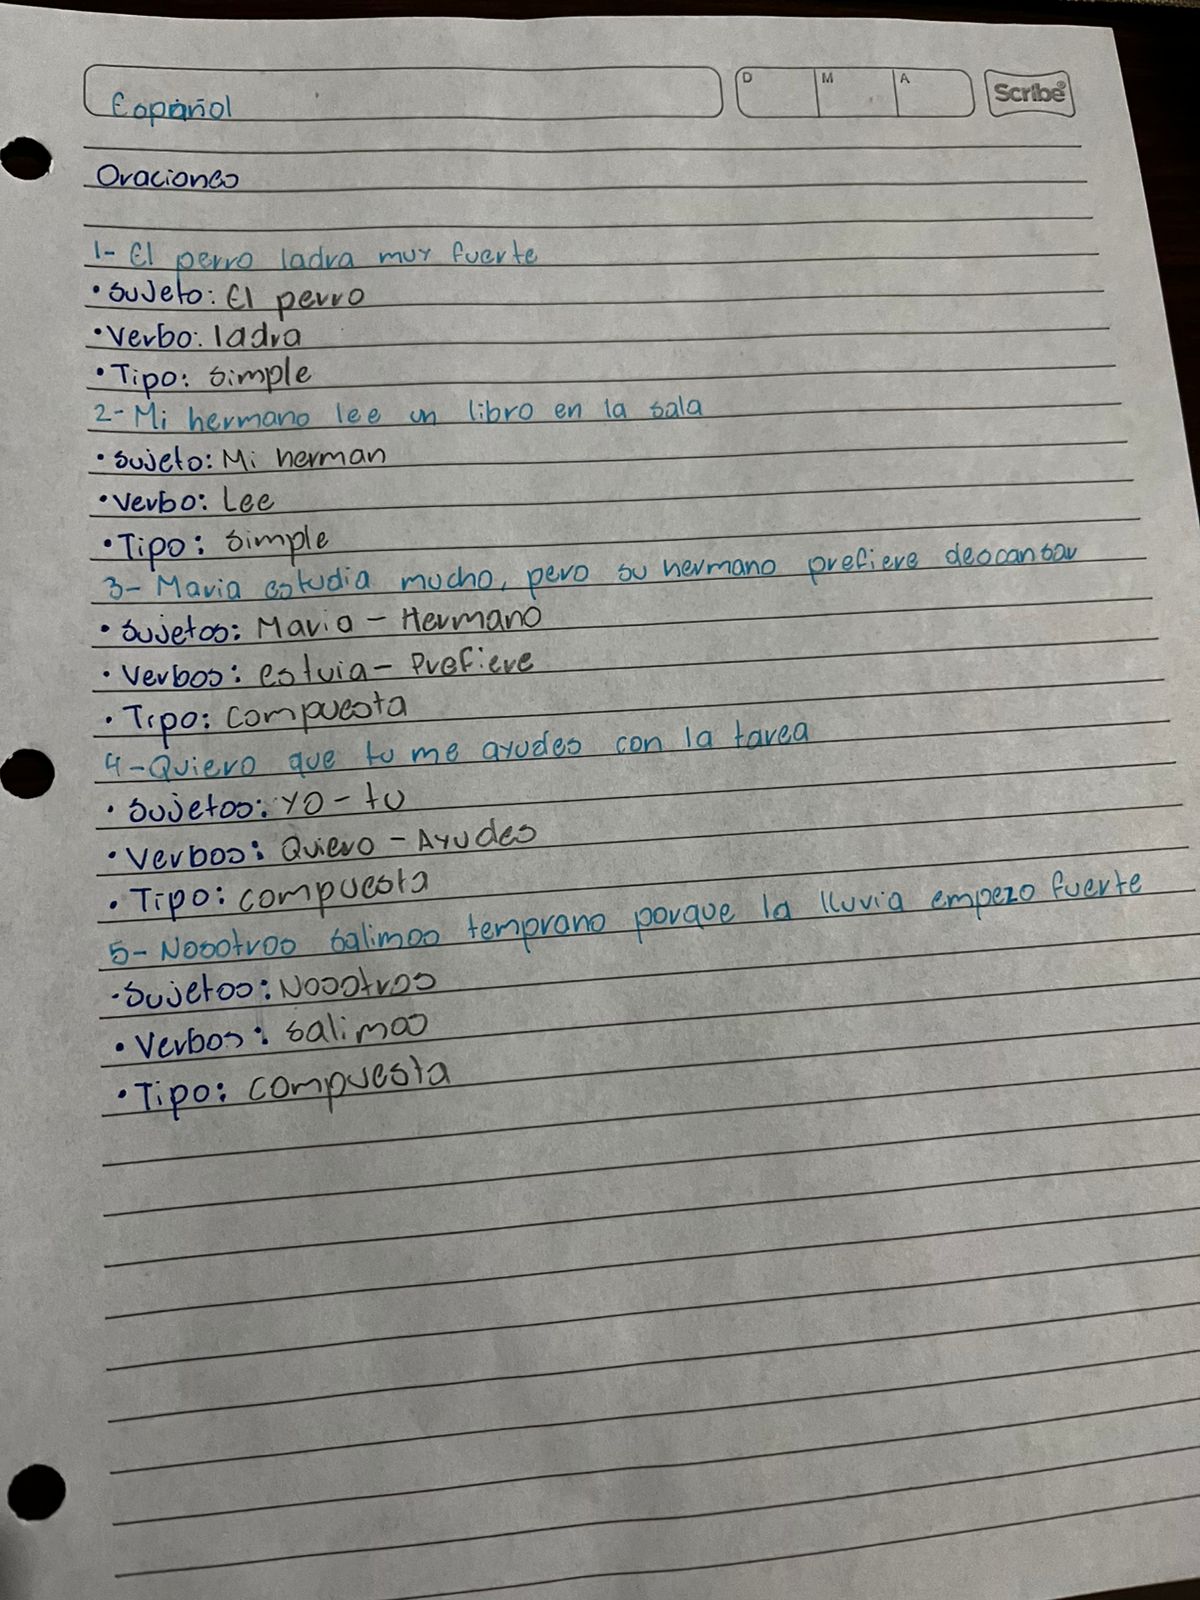 Español
D M A
Scribe
Oraciones
1- El perro ladra muy fuerte
• Sujeto: El perro
• Verbo: ladra
• Tipo: simple
2- Mi hermano lee un libro en la sala
• Sujeto: Mi herman
• Verbo: Lee
• Tipo: simple
3- Maria estudia mucho, pero su hermano prefiere descansar
• Sujetos: Maria - Hermano
• Verbos: estuia - Prefiere
• Tipo: compuesta
4- Quiero que tu me ayudes con la tarea
• Sujetos: Yo - tu
• Verbos: Quiero - Ayudes
• Tipo: compuesta
5- Nosotros salimos temprano porque la lluvia empezo fuerte
• Sujetos: Nosotros
• Verbos: salimos
• Tipo: compuesta